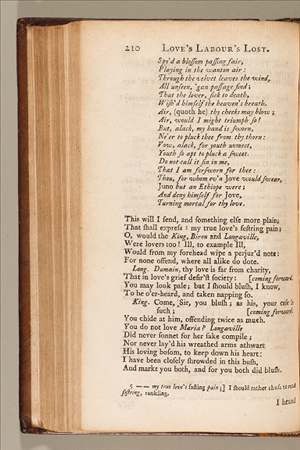 210 LOVE'S LABOUR'S LOST.
Spy'd a blossom passing fair,
Playing in the wanton air:
Through the velvet leaves the wind,
All unseen, 'gan passage find;
That the lover, sick to death,
Wish'd himself the heaven's breath.
Air, (quoth he) thy cheeks may blow;
Air, would I might triumph so!
But, alack, my hand is sworn,
Ne'er to pluck thee from thy thorn:
Vow, alack, for youth unmeet,
Youth so apt to pluck a sweet.
Do not call it sin in me,
That I am forsworn for thee:
Thou, for whom ev'n Jove would swear,
Juno but an Ethiope were;
And deny himself for Jove,
Turning mortal for thy love.
This will I send, and something else more plain;
That shall express 5 my true love's festring pain;
O, would the King, Biron and Longaville,
Were lovers too! Ill, to example Ill,
Would from my forehead wipe a perjur'd note:
For none offend, where all alike do dote.
Long. Dumain, thy love is far from charity,
That in love's grief desir'st society: [coming forward.
You may look pale; but I should blush, I know,
To be o'er-heard, and taken napping so.
King. Come, Sir, you blush; as his, your case is
such; [coming forward.
You chide at him, offending twice as much.
You do not love Maria? Longaville
Did never sonnet for her sake compile;
Nor never lay'd his wreathed arms athwart
His loving bosom, to keep down his heart;
I have been closely shrowded in this bush,
And markt you both, and for you both did blush.
5 —— my true love's fasting pain;] I should rather chuse to read
festring, rankling.
I heard